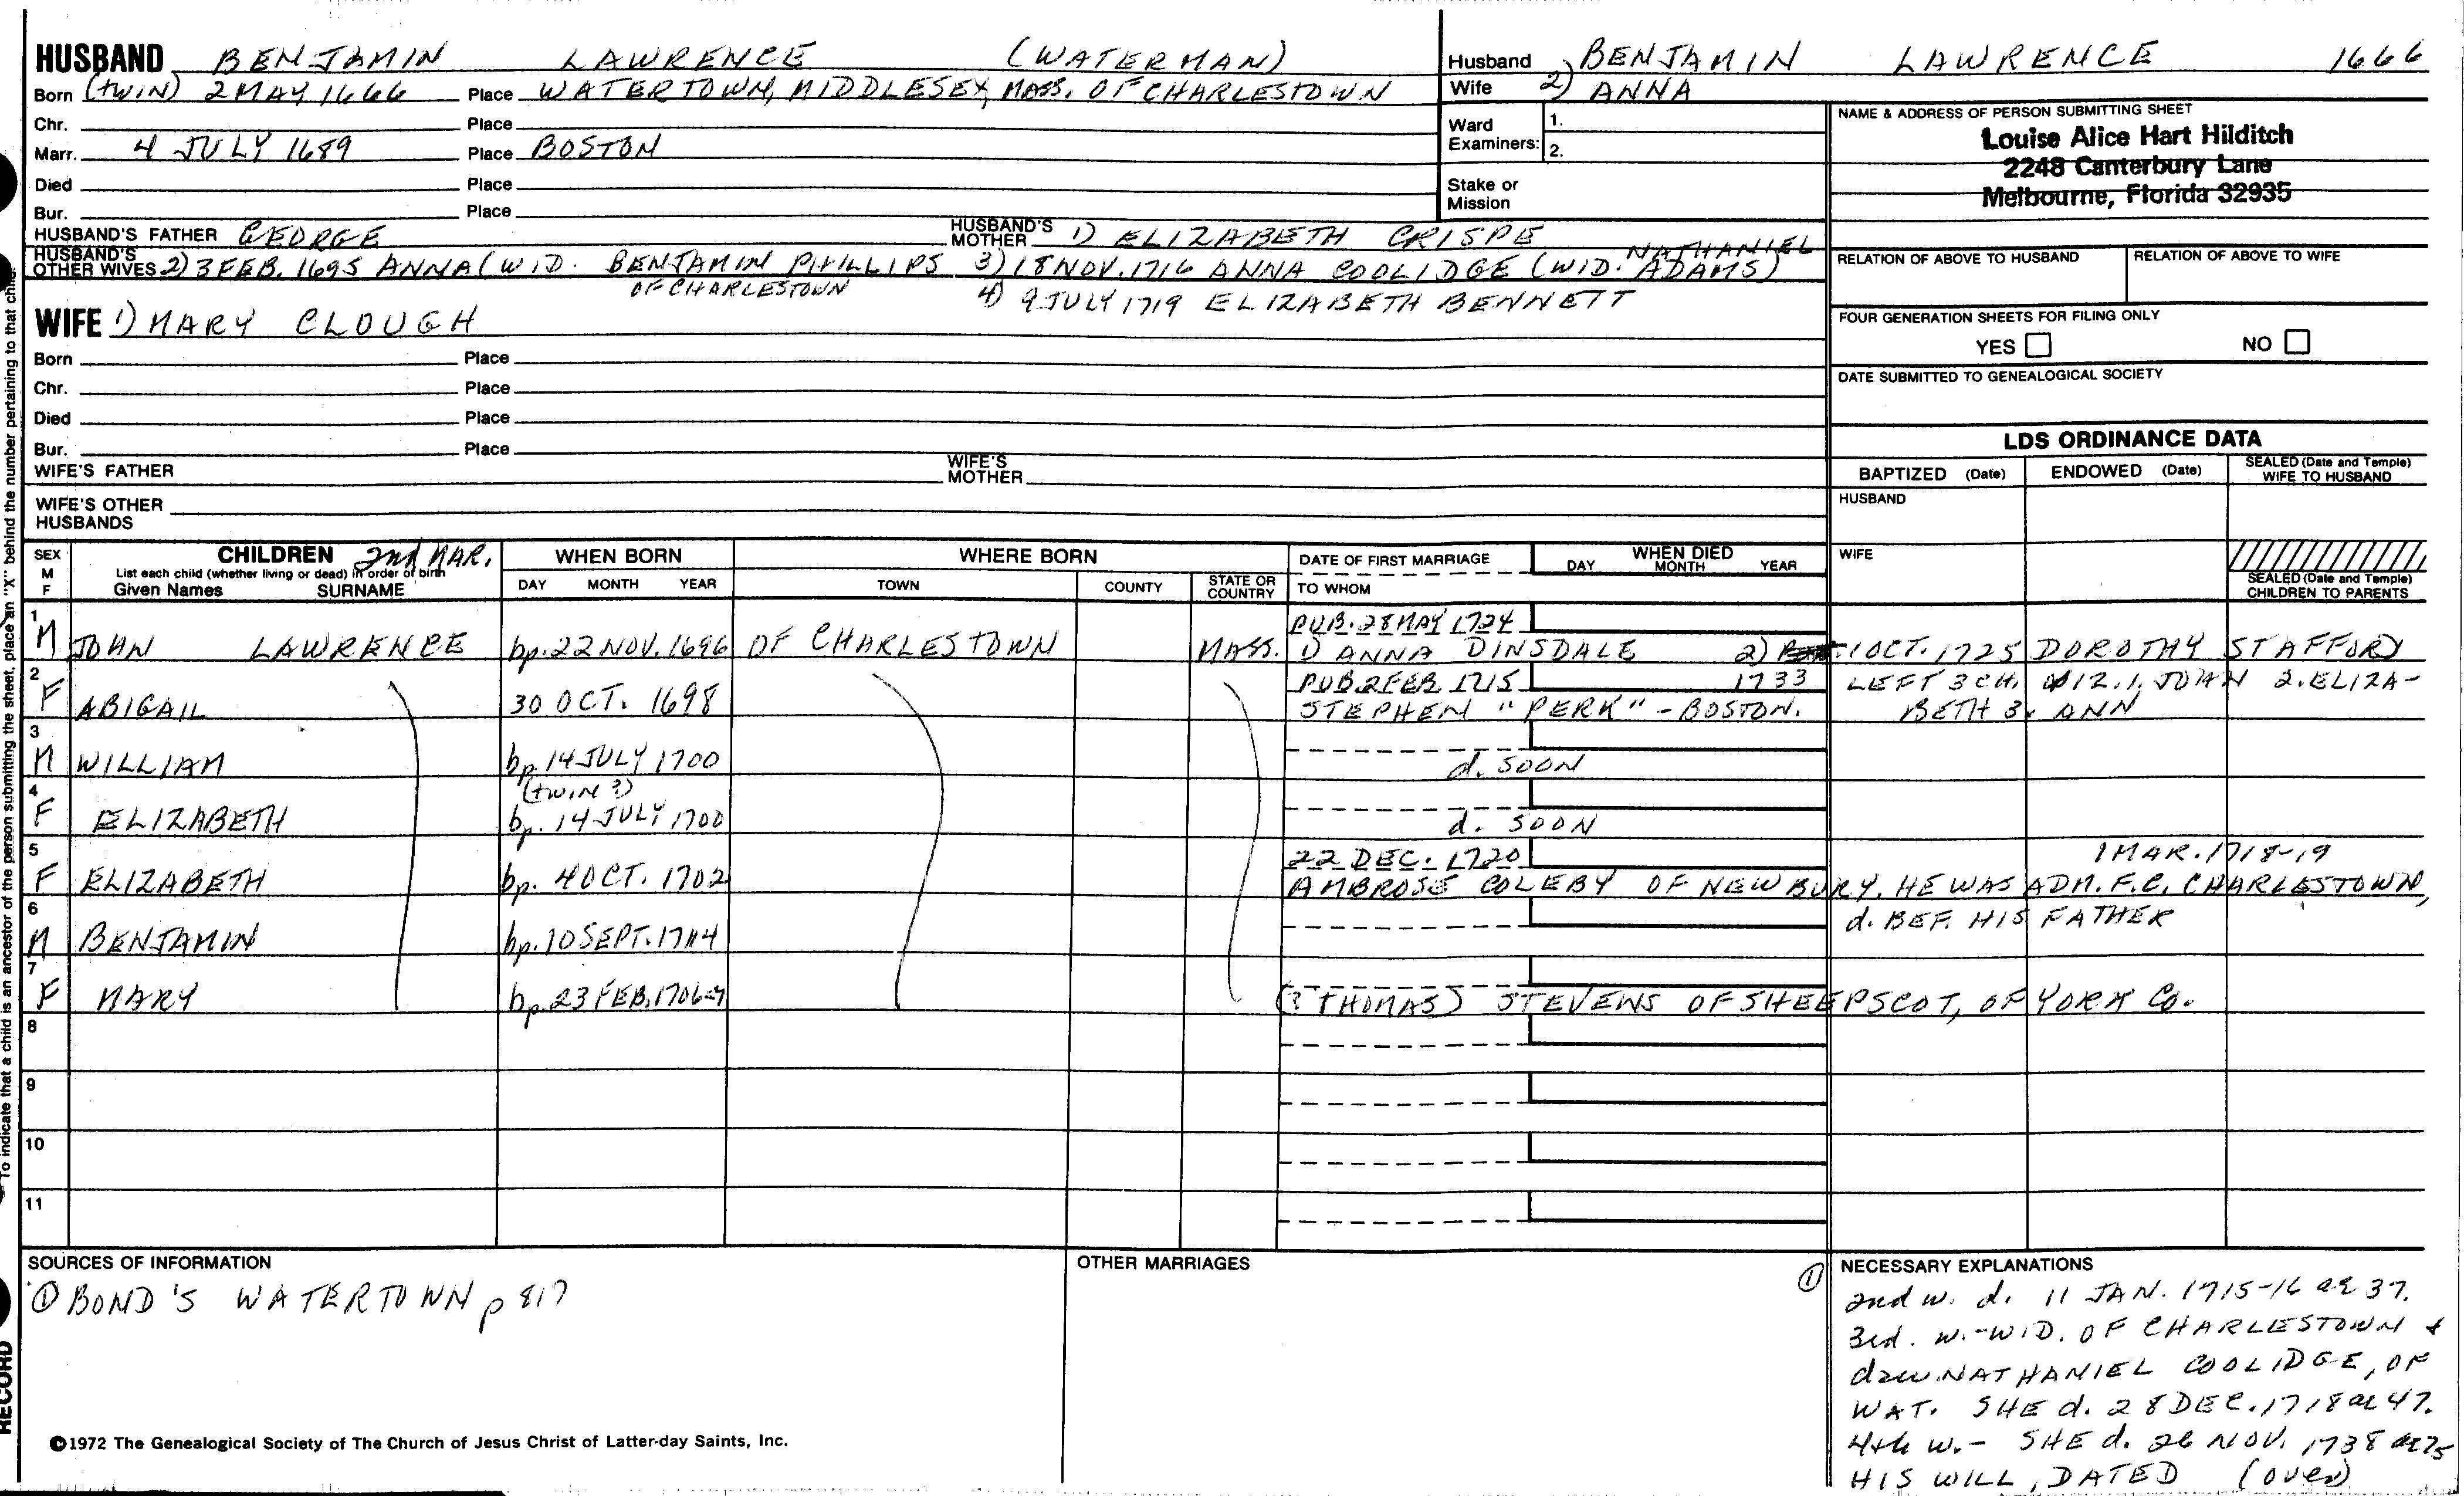 HUSBAND BENJAMIN LAWRENCE (WATERMAN)
Born (twin) 2 MAY 1666 Place WATERTOWN, MIDDLESEX, MASS. OF CHARLESTOWN
Chr. Place
Marr. 4 JULY 1689 Place BOSTON
Died Place
Bur. Place
HUSBAND'S FATHER GEORGE HUSBAND'S MOTHER 1) ELIZABETH CRISPE
HUSBAND'S OTHER WIVES 2) 3 FEB. 1695 ANNA (WID. BENJAMIN PHILLIPS 3) 18 NOV. 1716 ANNA COOLIDGE (WID. NATHANIEL ADAMS)
OF CHARLESTOWN 4) 9 JULY 1719 ELIZABETH BENNETT
WIFE 1) MARY CLOUGH
Born Place
Chr. Place
Died Place
Bur. Place
WIFE'S FATHER WIFE'S MOTHER
WIFE'S OTHER HUSBANDS
Husband BENJAMIN LAWRENCE 1666
Wife 2) ANNA
Ward Examiners: 1.
2.
Stake or Mission
NAME & ADDRESS OF PERSON SUBMITTING SHEET
Louise Alice Hart Hilditch
2248 Canterbury Lane
Melbourne, Florida 32935
RELATION OF ABOVE TO HUSBAND RELATION OF ABOVE TO WIFE
FOUR GENERATION SHEETS FOR FILING ONLY
YES NO
DATE SUBMITTED TO GENEALOGICAL SOCIETY
LDS ORDINANCE DATA
BAPTIZED (Date) ENDOWED (Date) SEALED (Date and Temple) WIFE TO HUSBAND
HUSBAND
WIFE
SEALED (Date and Temple) CHILDREN TO PARENTS
SEX M F CHILDREN 2nd MAR. WHEN BORN WHERE BORN DATE OF FIRST MARRIAGE WHEN DIED
List each child (whether living or dead) in order of birth
Given Names SURNAME DAY MONTH YEAR TOWN COUNTY STATE OR COUNTRY TO WHOM DAY MONTH YEAR
1 PUB. 28 MAY 1724
M JOHN LAWRENCE bp. 22 NOV. 1696 OF CHARLESTOWN MASS. 1) ANNA DINSDALE 2) 1 OCT. 1725 DOROTHY STAFFORD
2 PUB 2 FEB. 1715 1733 LEFT 3 CH. 1. JOHN 2. ELIZA-
F ABIGAIL 30 OCT. 1698 STEPHEN "PERK" - BOSTON. BETH 3. ANN
3
M WILLIAM bp. 14 JULY 1700 d. SOON
4 (twin?)
F ELIZABETH bp. 14 JULY 1700 d. SOON
5 22 DEC. 1720 1 MAR. 1718-19
F ELIZABETH bp. 4 OCT. 1702 AMBROSE COLEBY OF NEWBURY. HE WAS ADM. F.C. CHARLESTOWN,
6 d. BEF. HIS FATHER
M BENJAMIN bp. 10 SEPT.
7
F MARY bp. 23 FEB. 1706-7 (? THOMAS) STEVENS OF SHEEPSCOT, OF YORK CO.
8
9
10
11
SOURCES OF INFORMATION
① BOND'S WATERTOWN p 817
OTHER MARRIAGES
① NECESSARY EXPLANATIONS
2nd w. d. 11 JAN. 1715-16 ae 37.
3rd. w. - WID. OF CHARLESTOWN &
dau. NATHANIEL COOLIDGE, OF
WAT. SHE d. 28 DEC. 1718 ae 47.
4th w. - SHE d. 26 NOV. 1738 ae 75
HIS WILL, DATED (over)
©1972 The Genealogical Society of The Church of Jesus Christ of Latter-day Saints, Inc.
To indicate that a child is an ancestor of the person submitting the sheet, place an "X" behind the number pertaining to that
RECORD